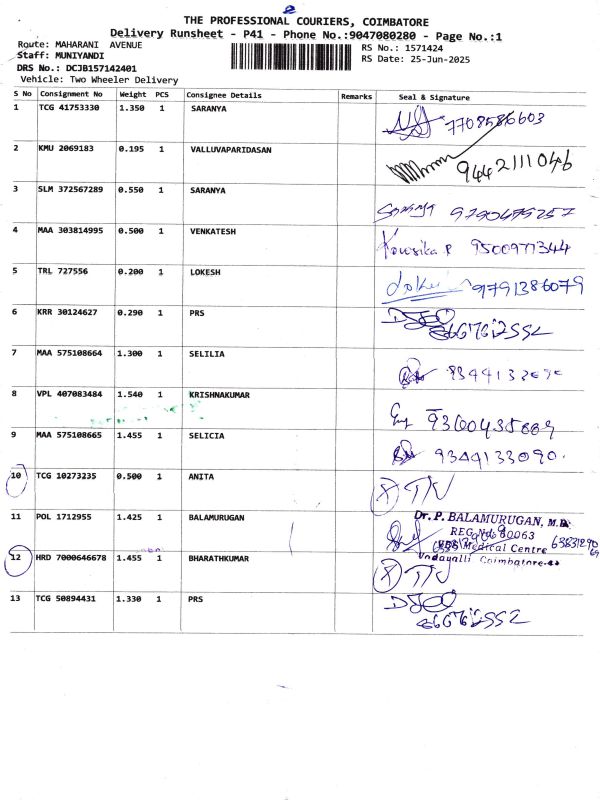 THE PROFESSIONAL COURIERS, COIMBATORE
Delivery Runsheet - P41 - Phone No.:9047080280 - Page No.:1
Route: MAHARANI AVENUE
RS No.: 1571424
Staff: MUNIYANDI
RS Date: 25-Jun-2025
DRS No.: DCJB157142401
Vehicle: Two Wheeler Delivery
S No Consignment No Weight PCS Consignee Details Remarks Seal & Signature
1 TCG 41753330 1.350 1 SARANYA 7708586603
2 KMU 2069183 0.195 1 VALLUVAPARIDASAN 9442111046
3 SLM 372567289 0.550 1 SARANYA
4 MAA 303814995 0.500 1 VENKATESH Kowsika P 9500977344
5 TRL 727556 0.200 1 LOKESH 9791386079
6 KRR 30124627 0.290 1 PRS
7 MAA 575108664 1.300 1 SELILIA
8 VPL 407083484 1.540 1 KRISHNAKUMAR
9 MAA 575108665 1.455 1 SELICIA 9344133090.
10 TCG 10273235 0.500 1 ANITA
11 POL 1712955 1.425 1 BALAMURUGAN
Dr. P. BALAMURUGAN, M.D.
REG.No: 80063
Medical Centre
Vadavalli Coimbatore-41
12 HRD 7000646678 1.455 1 BHARATHKUMAR
13 TCG 50894431 1.330 1 PRS